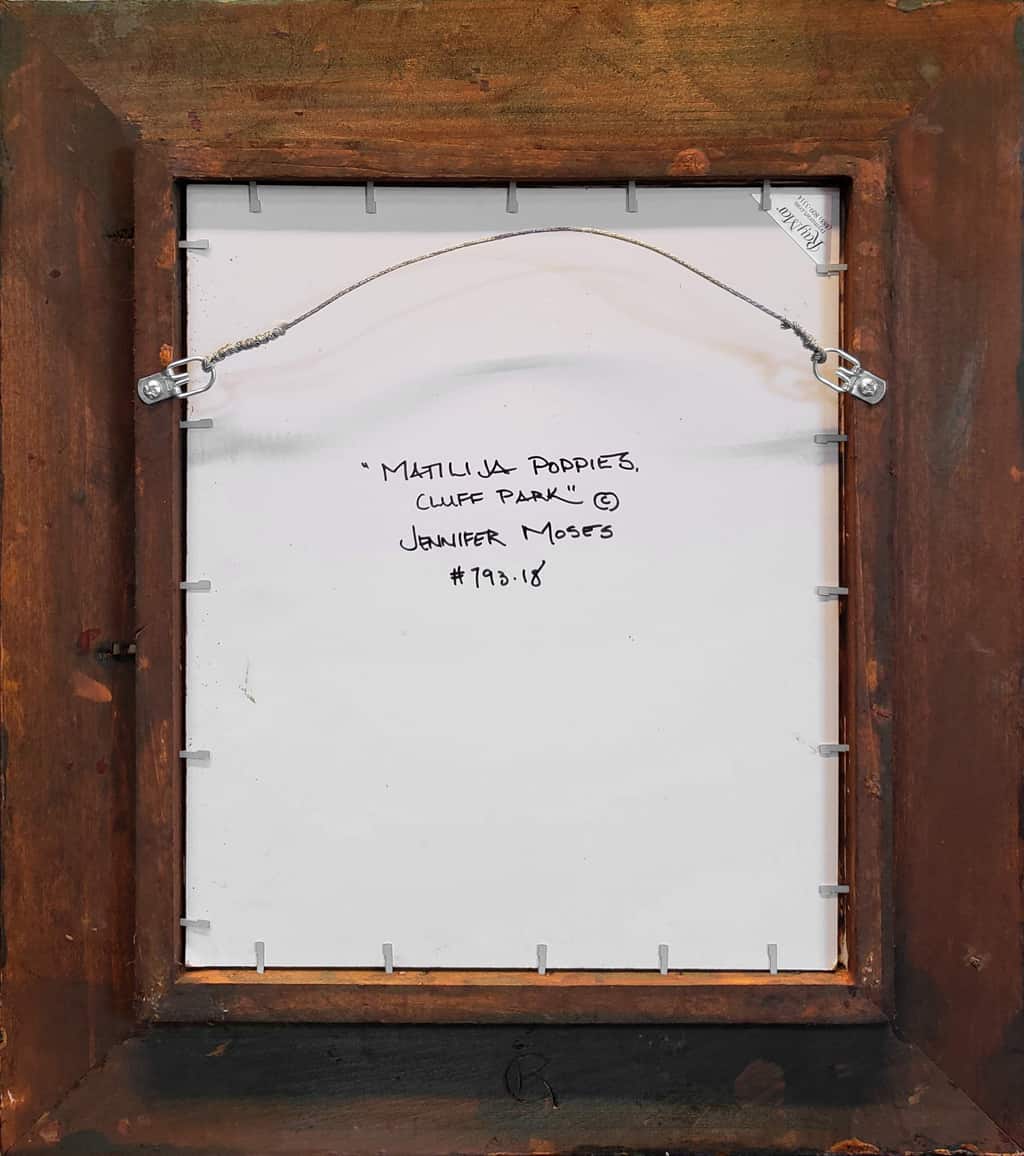 RayMar
"MATILIJA POPPIES,
CLUFF PARK" ©
JENNIFER MOSES
#793.18